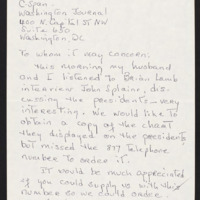 C-Span
Washington Journal
400 N. Capital St NW
Suite 650
Washington, DC
To whom it very concern:
This morning my husband
and I listened to Brian Lamb
interview John Splaine, dis-
cussing the presidents—very
interesting. We would like to
obtain a copy of the chart
they displayed on the presidents
but missed the 877 telephone
number to order it.
It would be much appreciated
if you could supply us with this
number so we could order